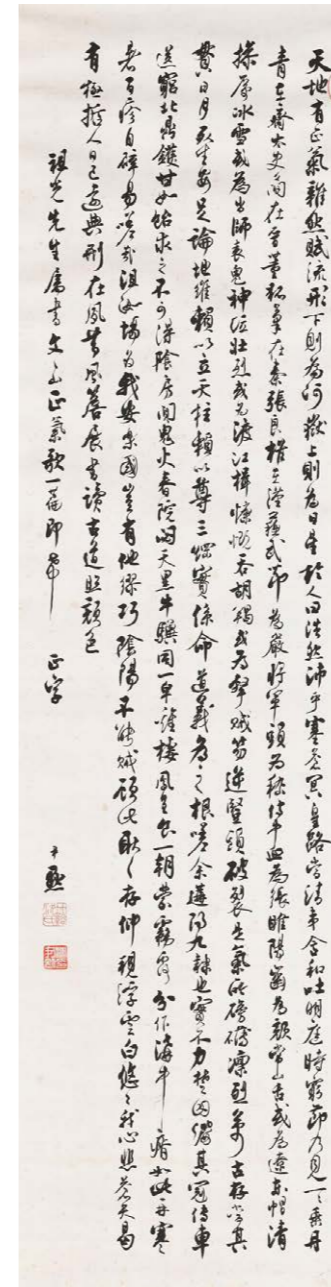 天地有正氣雜然賦流形下則為河嶽上則為日星於人曰浩然沛乎塞蒼冥皇路當清夷含和吐明庭時窮節乃見一一垂丹
青在齊太史簡在晉董狐筆在秦張良椎在漢蘇武節為嚴將軍頭為嵇侍中血為張睢陽齒為顏常山舌或為遼東帽清
操厲冰雪或為出師表鬼神泣壯烈或為渡江楫慷慨吞胡羯或為擊賊笏逆豎頭破裂是氣所磅礴凜烈萬古存當其
貫日月死生安足論地維賴以立天柱賴以尊三綱實係命道義為之根嗟余遘陽九隸也實不力楚囚纓其冠傳車
送窮北鼎鑊甘如飴求之不可得陰房闃鬼火春院閟天黑牛驥同一皁雞棲鳳皇食一朝蒙霧露分作溝中瘠如此再寒
暑百沴自辟易嗟哉沮洳場為我安樂國豈有他繆巧陰陽不能賊顧此耿耿存仰視浮雲白悠悠我心悲蒼天曷
有極哲人日已遠典刑在夙昔風簷展書讀古道照顏色
祖光先生屬書文山正氣歌一篇即希 正字
尹默